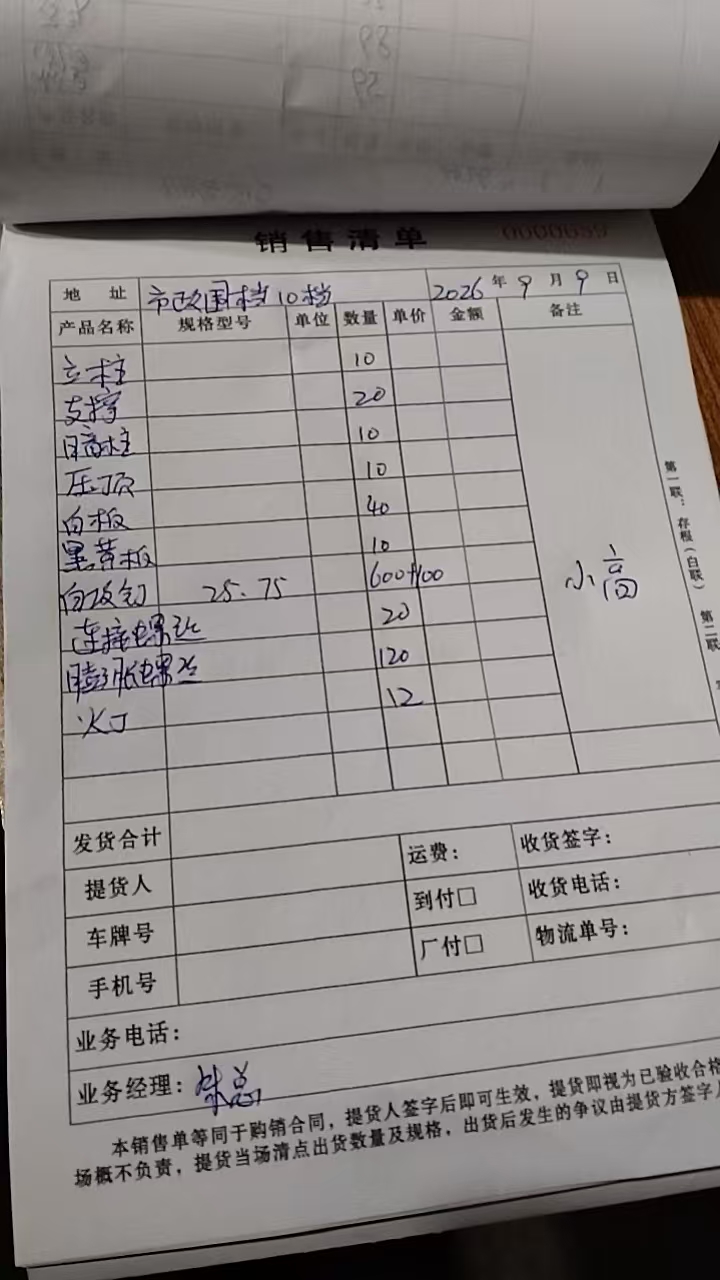 销售清单 0000659
地址 市政围档10档 2026年9月9日
产品名称 规格型号 单位 数量 单价 金额 备注
立柱 10
支撑 20
暗柱 10
压顶 10
白板 40
黑黄板 10
自攻钉 25.75 600+100
连接螺丝 20
膨胀螺丝 120
火丁 12
小高
发货合计
提货人 运费： 收货签字：
车牌号 到付□ 收货电话：
手机号 厂付□ 物流单号：
业务电话：
业务经理：朱总
本销售单等同于购销合同，提货人签字后即可生效，提货即视为已验收合格
场概不负责，提货当场清点出货数量及规格，出货后发生的争议由提货方签字
第一联：存根（白联） 第二联